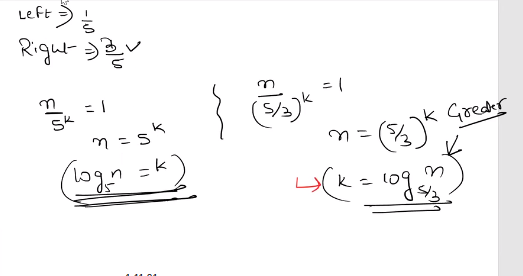 Left ⇒ 1/5
Right ⇒ 3/5 ✓
n/5^k = 1
n = 5^k
(log_5 n = k)
n/(5/3)^k = 1
n = (5/3)^k
Greater
(k = log_{5/3} n)